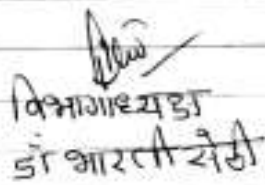 विभागाध्यक्ष
डॉ भारती सेठी